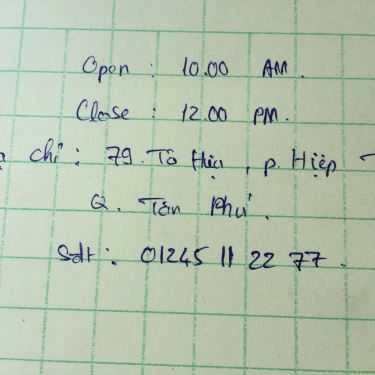 Open : 10.00 AM.
Close : 12.00 PM.
chỉ : 79. Tô Hiệu, p. Hiệp
Q. Tân Phú.
Sdt : 01245 11 22 77.